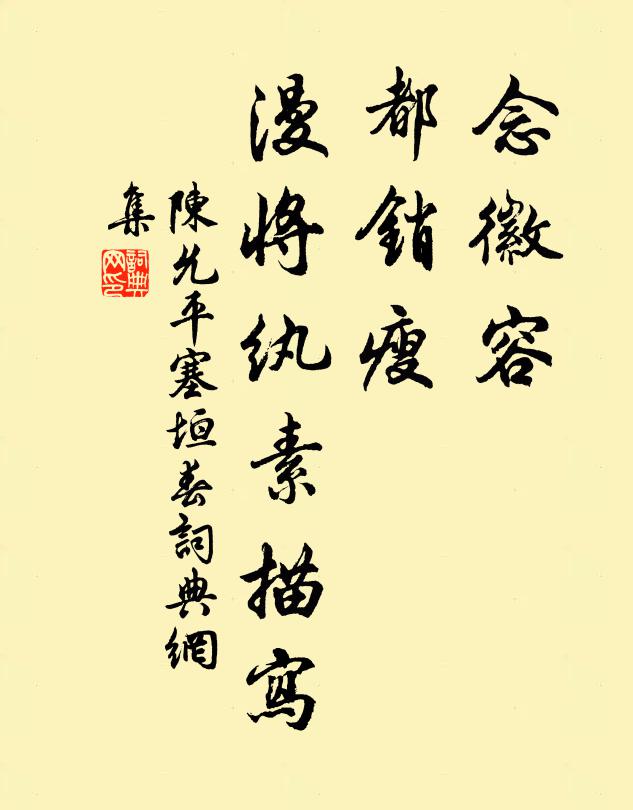 念徽容
都銷瘦
漫將紈素描寫
陳允平塞垣春詞典網
集
詞典
网印